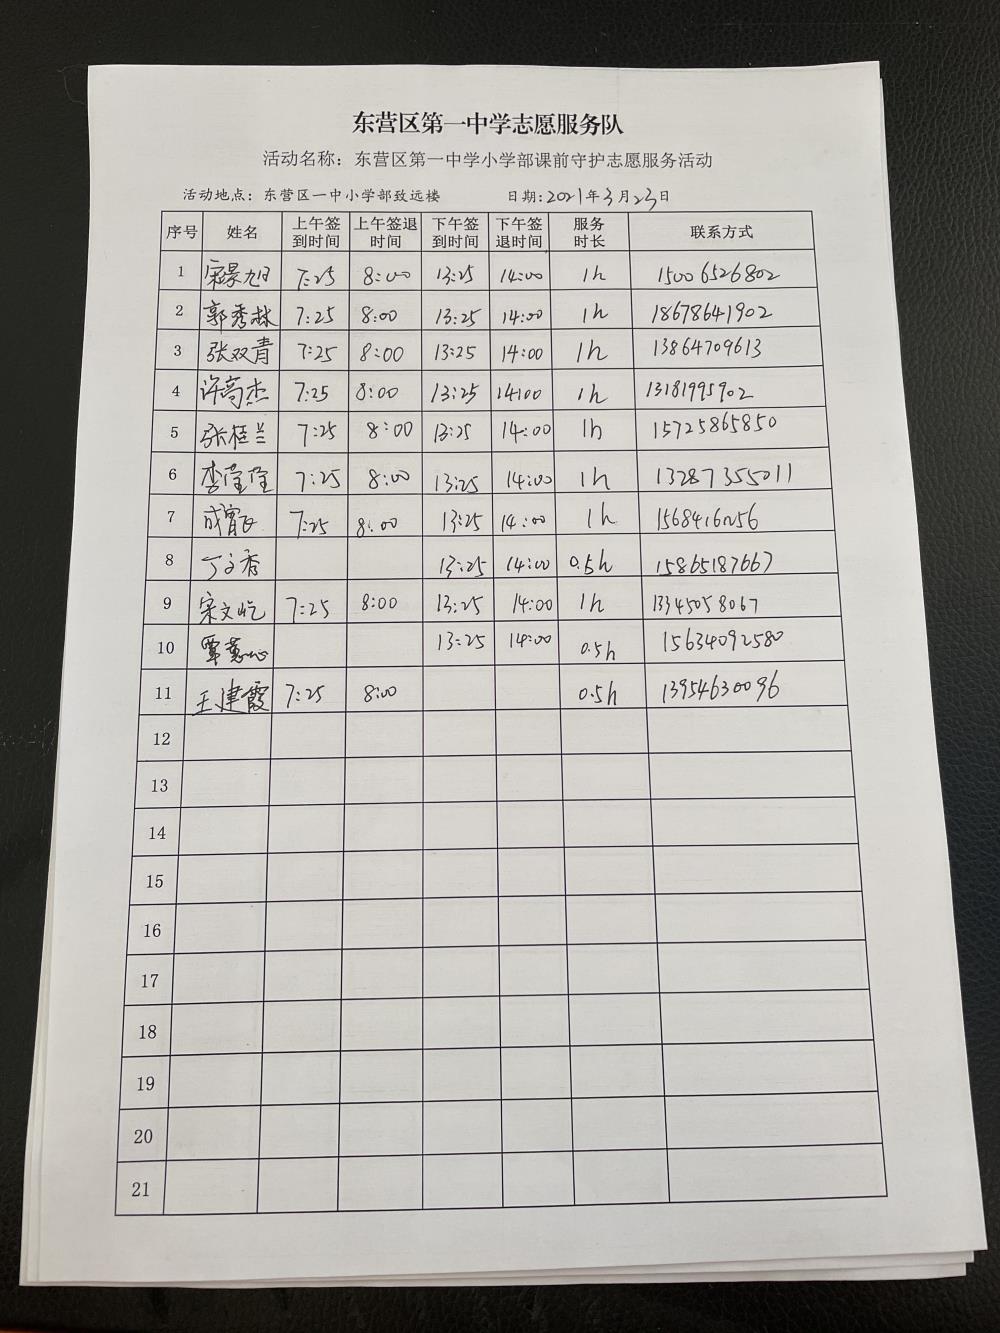 东营区第一中学志愿服务队
活动名称：东营区第一中学小学部课前守护志愿服务活动
活动地点：东营区一中小学部致远楼 日期:2021年3月23日
序号 姓名 上午签到时间 上午签退时间 下午签到时间 下午签退时间 服务时长 联系方式
1 7:25 8:00 13:25 14:00 1h 15006526802
2 郭秀林 7:25 8:00 13:25 14:00 1h 18678641902
3 张双青 7:25 8:00 13:25 14:00 1h 13864709613
4 许高杰 7:25 8:00 13:25 14:00 1h 13181995902
5 张桂兰 7:25 8:00 13:25 14:00 1h 15725865850
6 李莹莹 7:25 8:00 13:25 14:00 1h 13287355011
7 7:25 8:00 13:25 14:00 1h
8 丁文香 13:25 14:00 0.5h 15865187667
9 宋文屹 7:25 8:00 13:25 14:00 1h 13345058067
10 覃慧心 13:25 14:00 0.5h 15634092580
11 王建霞 7:25 8:00 0.5h 13954630096
12
13
14
15
16
17
18
19
20
21